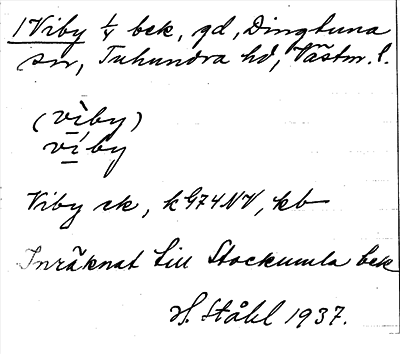 1 Viby 1/4 bek, gd, Dingtuna
sn, Tuhundra hd, Västm. l.
(vìby)
víby
Viby ek, k G74NV, kb
Inräknat till Stockumla bek
H. Ståhl 1937.